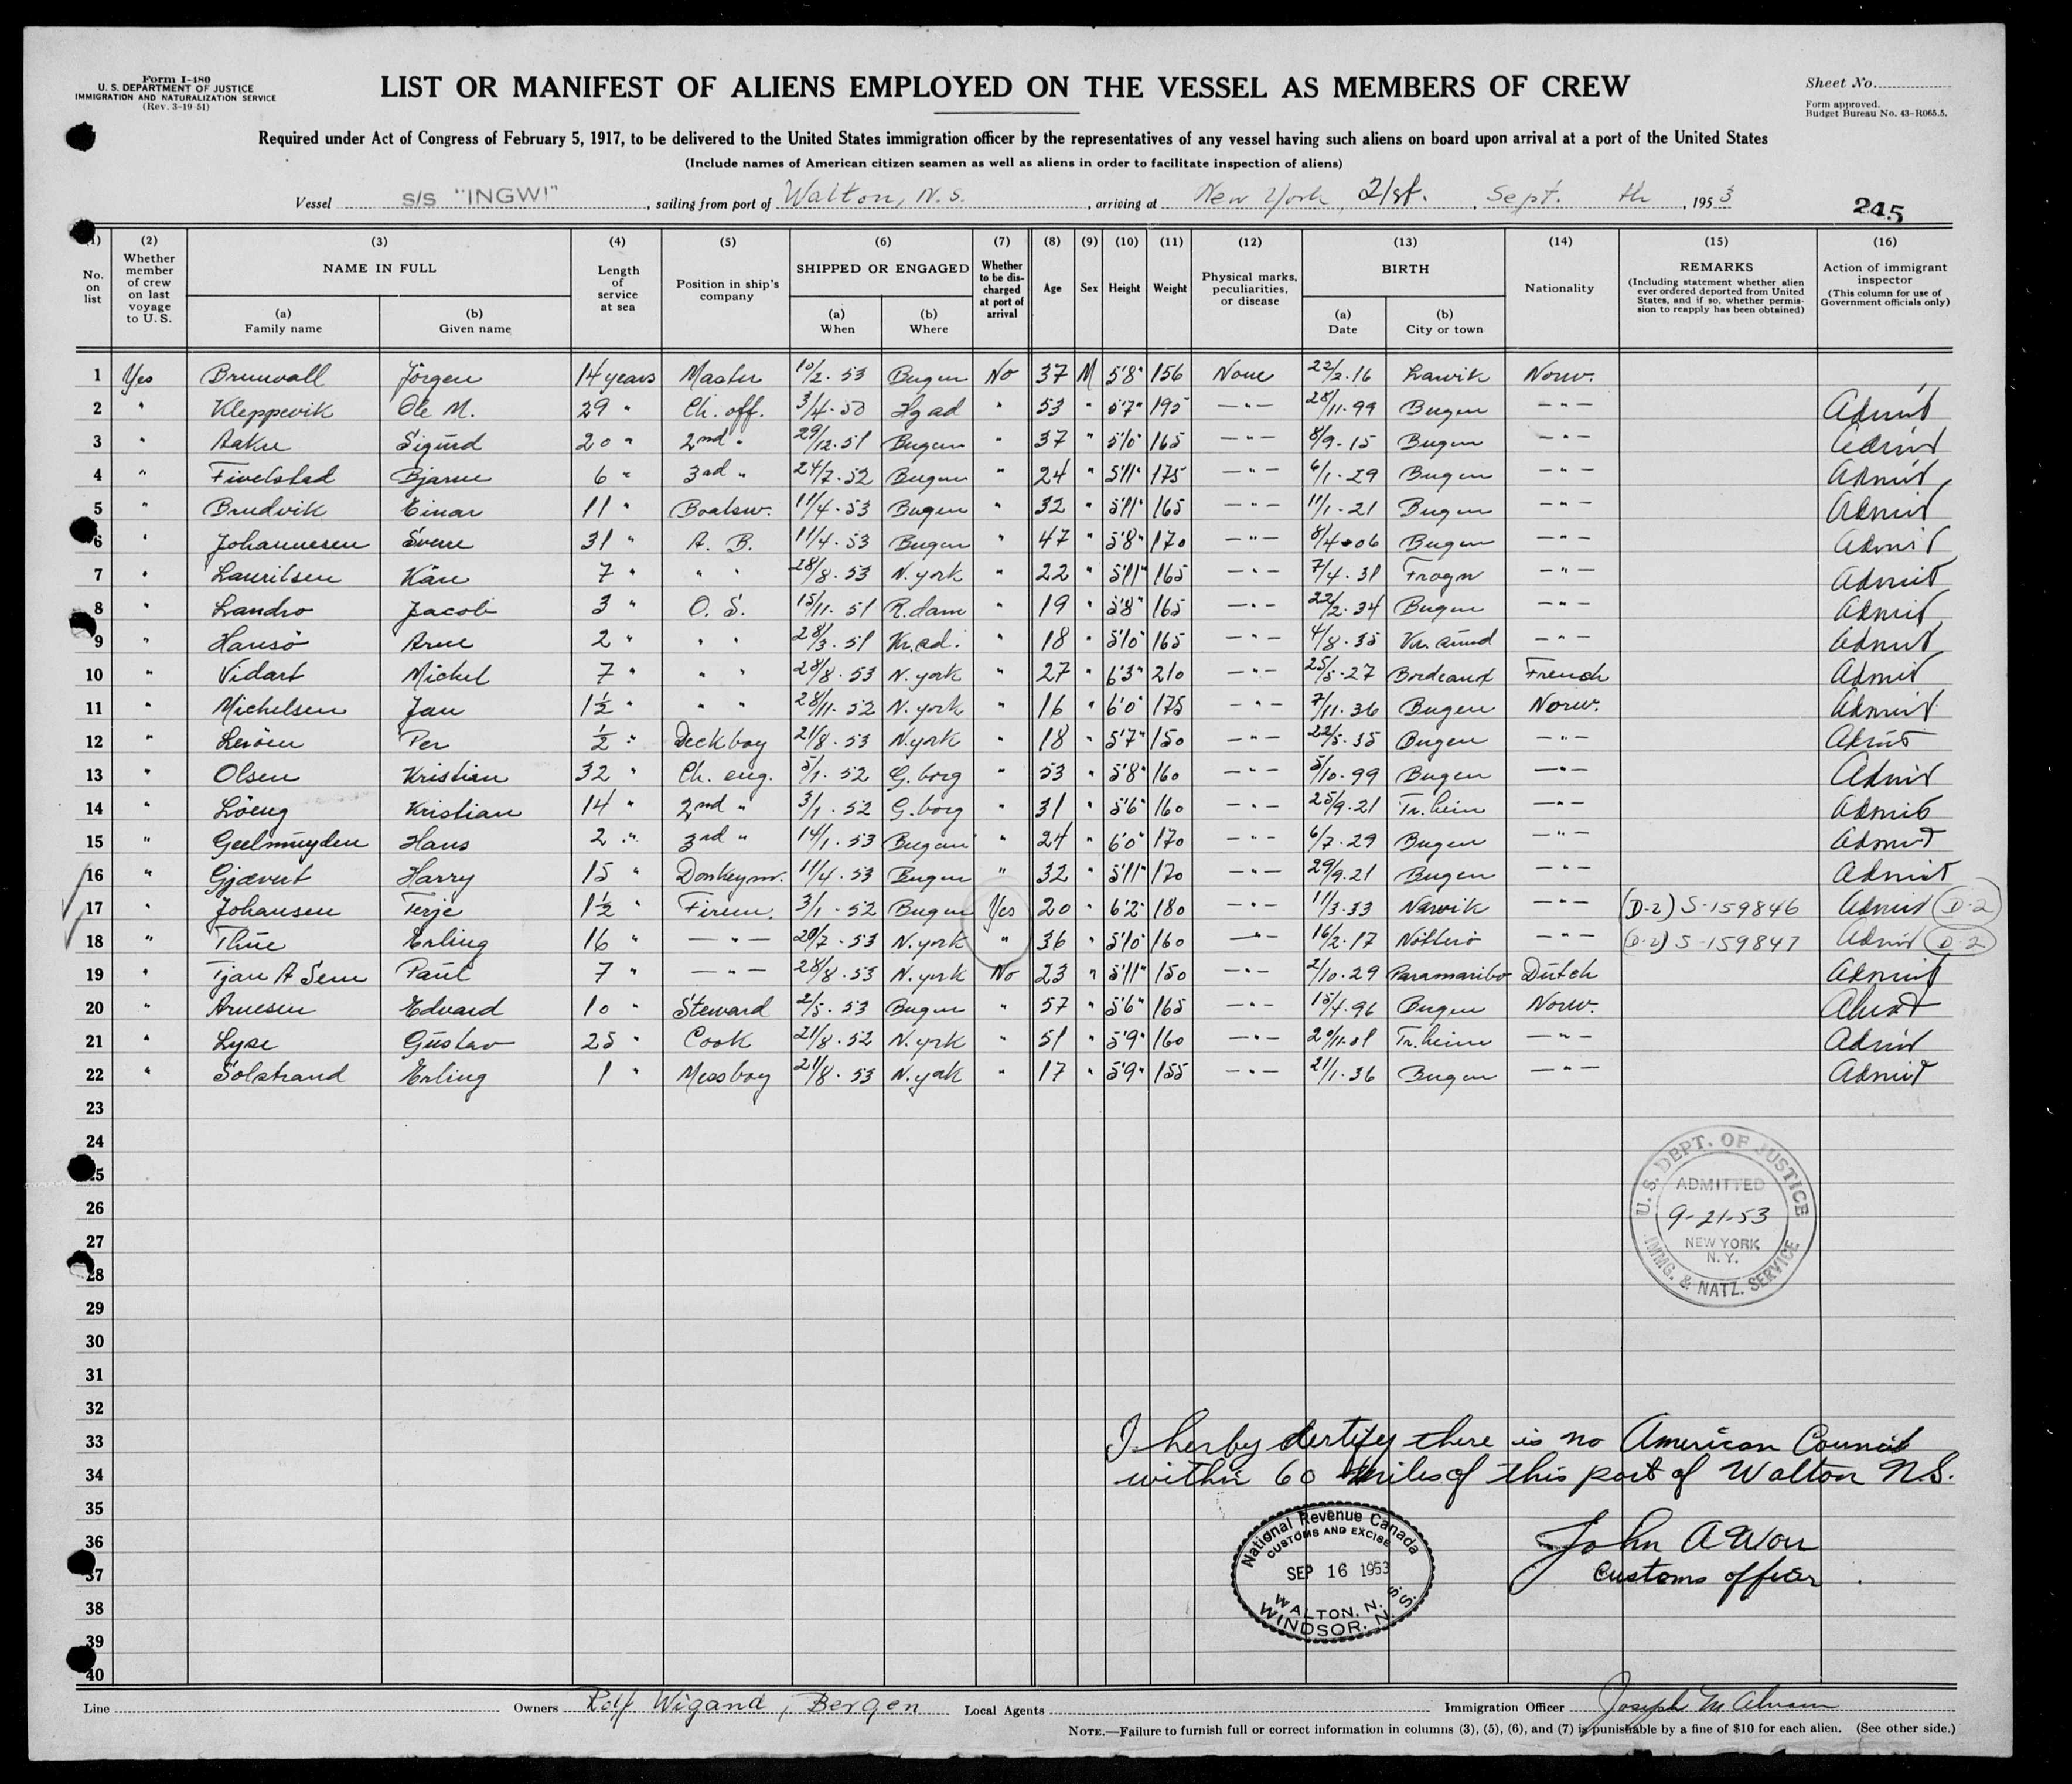 Form I-480
U. S. DEPARTMENT OF JUSTICE
IMMIGRATION AND NATURALIZATION SERVICE
(Rev. 3-19-51)
LIST OR MANIFEST OF ALIENS EMPLOYED ON THE VESSEL AS MEMBERS OF CREW
Sheet No.
Form approved.
Budget Bureau No. 43-R065.5.
Required under Act of Congress of February 5, 1917, to be delivered to the United States immigration officer by the representatives of any vessel having such aliens on board upon arrival at a port of the United States
(Include names of American citizen seamen as well as aliens in order to facilitate inspection of aliens)
Vessel S/S "INGWI", sailing from port of Walton, N.S., arriving at New York, 21st., Sept. th, 1953
245
(1) No. on list (2) Whether member of crew on last voyage to U.S. (3) NAME IN FULL (a) Family name (b) Given name (4) Length of service at sea (5) Position in ship's company (6) SHIPPED OR ENGAGED (a) When (b) Where (7) Whether to be discharged at port of arrival (8) Age (9) Sex (10) Height (11) Weight (12) Physical marks, peculiarities, or disease (13) BIRTH (a) Date (b) City or town (14) Nationality (15) REMARKS (Including statement whether alien ever ordered deported from United States, and if so, whether permission to reapply has been obtained) (16) Action of immigrant inspector (This column for use of Government officials only)
1 Yes Brunvall Jörgen 14 years Master 10/2. 53 Bergen No 37 M 5'8" 156 None 22/2.16 Larvik Norw.
2 " Kleppevik Ole M. 29 " Ch. off. 3/4.50 " 53 " 5'7" 195 —"— 28/11.99 Bergen —"— Admit
3 " Sigurd 20 " 2nd " 29/12.51 Bergen " 37 " 5'10" 165 —"— 8/9.15 Bergen —"— Admit
4 " Fivelstad Bjarne 6 " 3rd " 24/7.52 Bergen " 24 " 5'11" 175 —"— 6/1.29 Bergen —"— Admit
5 " Brudvik Einar 11 " Boatsw. 11/4.53 Bergen " 32 " 5'11" 165 —"— 11/1.21 Bergen —"— Admit
6 " Johannesen Sverre 31 " A. B. 11/4.53 Bergen " 47 " 5'8" 170 —"— 8/4.06 Bergen —"— Admit
7 " Lauritsen Kåre 7 " " " 28/8.53 N. york " 22 " 5'11" 165 —"— 7/4.31 Frogn —"— Admit
8 " Landro Jacob 3 " O. S. 15/11.51 R.dam " 19 " 5'8" 165 —"— 22/2.34 Bergen —"— Admit
9 " Hansö Arne 2 " " " 28/3.51 Kr.ad. " 18 " 5'10" 165 —"— 4/8.35 —"— Admit
10 " Vidart Michel 7 " " " 28/8.53 N. york " 27 " 6'3" 210 —"— 25/5.27 Bordeaux French Admit
11 " Michelsen Jan 1½ " " " 28/11.52 N. york " 16 " 6'0" 175 —"— 7/11.36 Bergen Norw. Admit
12 " Per ½ " Deckboy 21/8.53 N.york " 18 " 5'7" 150 —"— 22/5.35 Bergen —"— Admit
13 " Olsen Kristian 32 " Ch. eng. 5/1.52 G. borg " 53 " 5'8" 160 —"— 5/10.99 Bergen —"— Admit
14 " Löeng Kristian 14 " 2nd " 3/1.52 G. borg " 31 " 5'6" 160 —"— 25/9.21 Tr.heim —"— Admit
15 " Geelmuyden Hans 2 " 3rd " 14/1.53 Bergen " 24 " 6'0" 170 —"— 6/7.29 Bergen —"— Admit
16 " Gjævert Harry 15 " Donkeym. 11/4.53 Bergen " 32 " 5'11" 170 —"— 29/9.21 Bergen —"— Admit
17 " Johansen Terje 1½ " Firem. 3/1.52 Bergen Yes 20 " 6'2" 180 —"— 11/3.33 Narvik —"— (D-2) S-159846 Admit D-2
18 " Thue Erling 16 " —"— 20/7.53 N. york " 36 " 5'10" 160 —"— 16/2.17 Nötterö —"— (D-2) S-159847 Admit D-2
19 " Tjan A Sem Paul 7 " —"— 28/8.53 N. york No 23 " 5'11" 150 —"— 2/10.29 Paramaribo Dutch Admit
20 " Arnesen Edvard 10 " Steward 2/5.53 Bergen " 57 " 5'6" 165 —"— 15/4.96 Bergen Norw. Admit
21 " Lyse Gustav 25 " Cook 21/8.52 N. york " 51 " 5'9" 160 —"— 20/11.01 Tr.heim —"— Admit
22 " Solstrand Erling 1 " Messboy 21/8.53 N. york " 17 " 5'9" 155 —"— 21/1.36 Bergen —"— Admit
23
24
25
26
27
28
29
30
31
32
33
34
35
36
37
38
39
40
U. S. DEPT. OF JUSTICE
ADMITTED
9-21-53
NEW YORK
N. Y.
IMMG. & NATZ. SERVICE
I herby certify there is no American Council
within 60 miles of this port of Walton N.S.
John A
Customs officer
National Revenue Canada
CUSTOMS AND EXCISE
SEP 16 1953
WALTON, N. S.
WINDSOR, N. S.
Line Owners Rolf Wigand, Bergen Local Agents Immigration Officer Joseph M
NOTE.—Failure to furnish full or correct information in columns (3), (5), (6), and (7) is punishable by a fine of $10 for each alien. (See other side.)